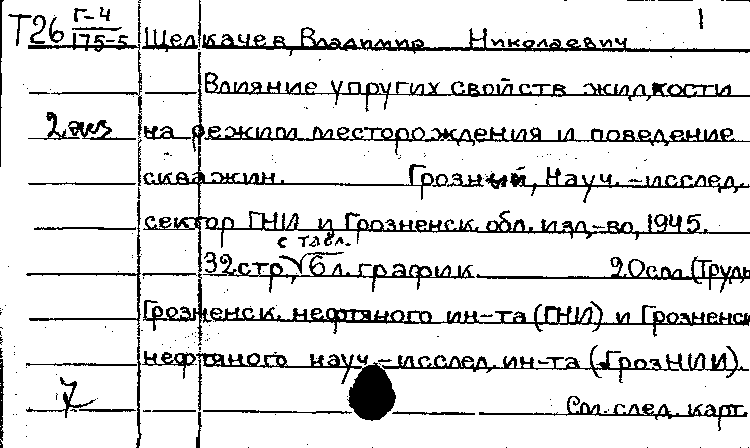 Т26 Г-4 1
175-5 Щелкачев, Владимир Николаевич
Влияние упругих свойств жидкости
2 экз на режим месторождения и поведение
скважин. Грозный, Науч.-исслед.
сектор ГНИ и Грозненск. обл. изд.-во, 1945.
с табл.
32 стр, 6 л. график. 20 см. (Труды
Грозненск. нефтяного ин-та (ГНИ) и Грозненск
нефтяного науч.-исслед. ин-та (ГрозНИИ).
7 См. след. карт.